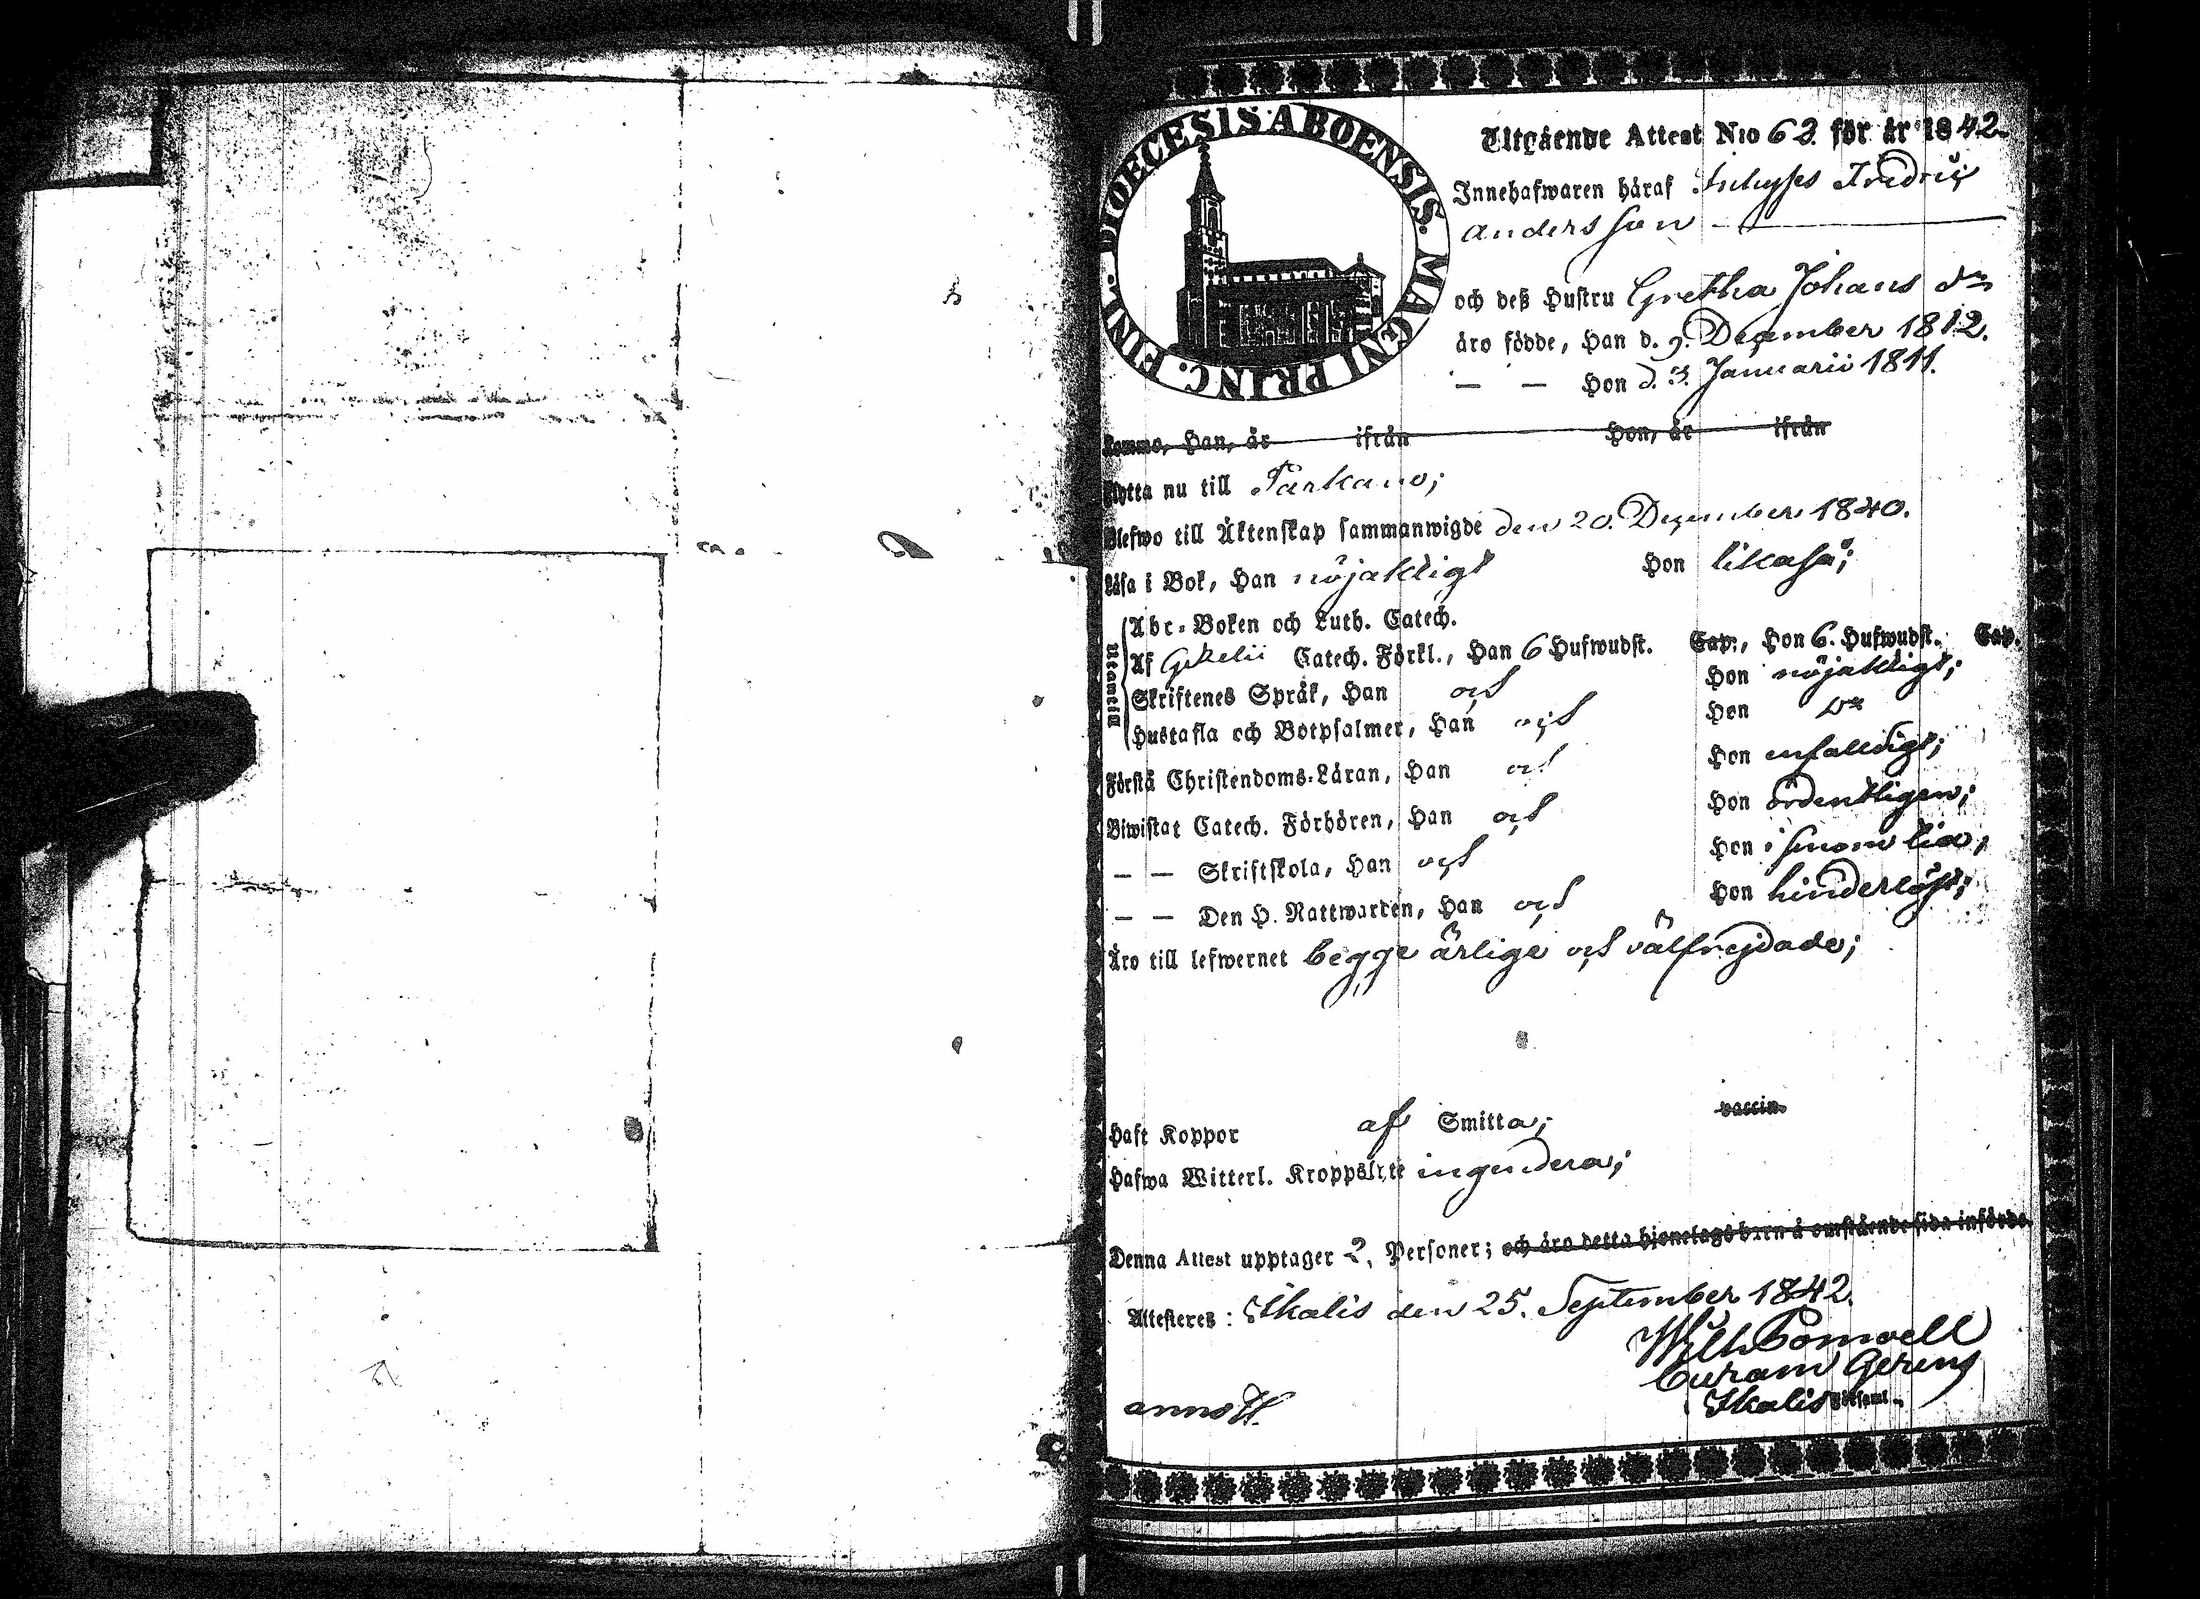 DIOECESIS ABOENSIS. MAGNI PRINC. FINL.
Utgående Attest N:o 62. för år 1842.
Innehafwaren häraf Inhyses Fredric
Andersson
och deß Hustru Gretha Johans dr
äro födde, Han d. 9. December 1812.
— — Hon d. 3. Januarii 1811.
Komme, Han, år ifrån Hon, år ifrån
Flytta nu till Parkano;
Blefwo till Äktenskap sammanwigde den 20. December 1840.
Läsa i Bok, Han nöjaktligt Hon likaså;
Utantill
Abc-Boken och Luth. Catech.
Af Catech. Förkl., Han 6 Hufwudst. Cap., Hon 6. Hufwudst. Cap.
Skriftenes Språk, Han och Hon nöjaktligt;
Hustafla och Botpsalmer, Han och Hon Do
Förstå Christendoms-Läran, Han och Hon enfaldigt;
Biwistat Catech. Förhören, Han och Hon ordentligen;
— — Skriftskola, Han och Hon i sinom tid;
— — Den H. Nattwarden, Han och Hon hinderlöst;
Äro till lefwernet begge ärlige och välfrejdade;
Haft Koppor af Smitta; vaccin.
Hafwa Witterl. Kroppslyte ingendera;
Denna Attest upptager 2. Personer; och äro detta hjonelags barn å omstående sida införde.
Attesteres: Ikalis den 25. September 1842.
Wilh
Curam Gerens
Ikalis Församl.